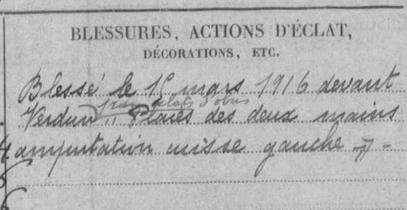 BLESSURES, ACTIONS D'ÉCLAT,
DÉCORATIONS, ETC.
Blessé le 15 mars 1916 devant
par éclats d'obus
Verdun. Plaies des deux mains
amputation cuisse gauche